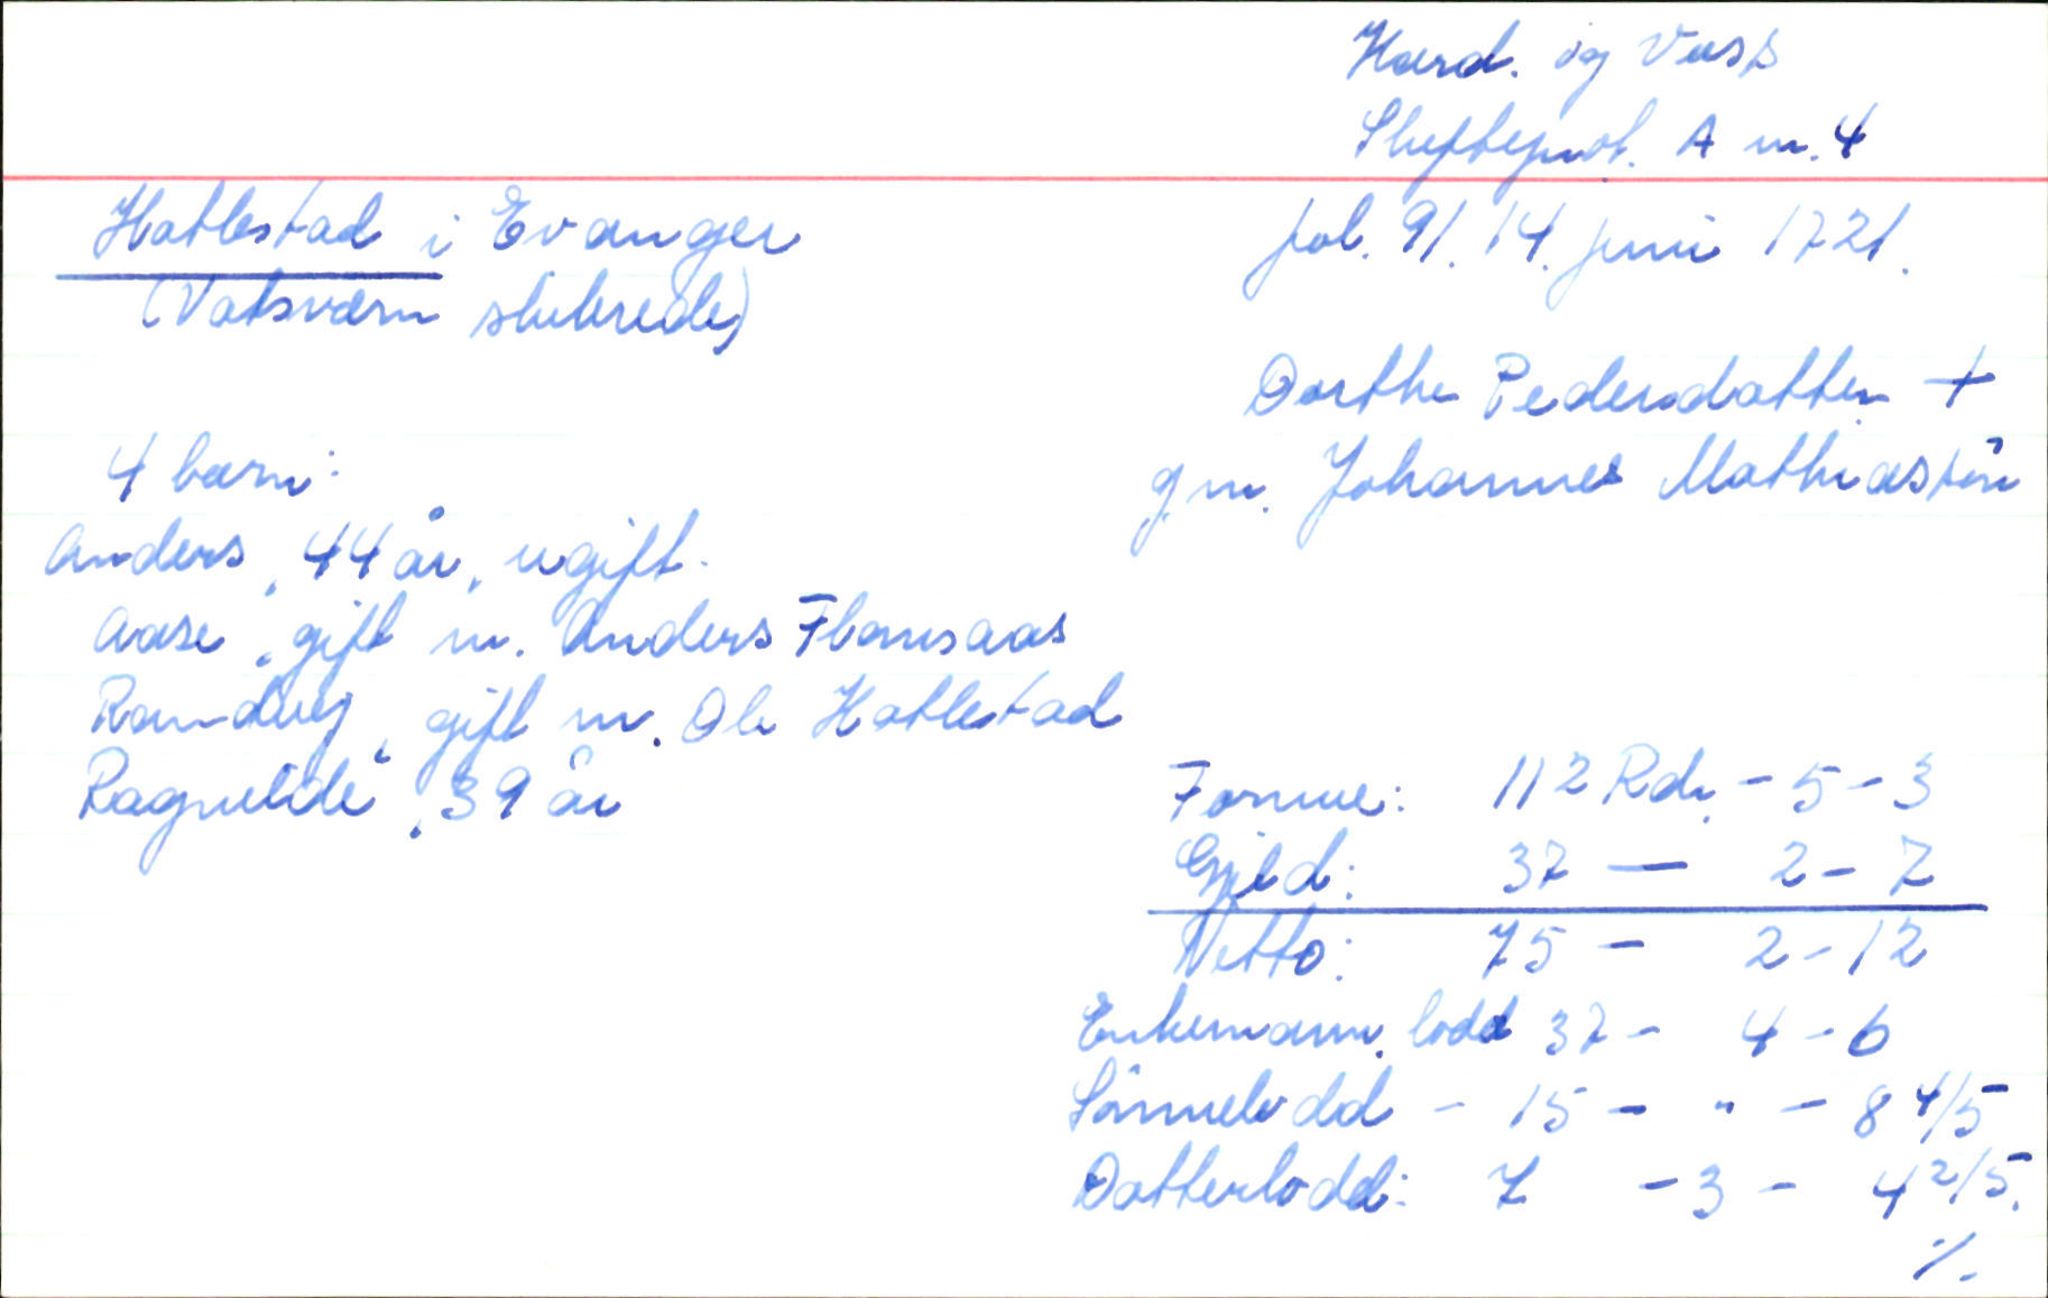 Hard. og Voss
Skifteprot. A nr. 4
fol. 91. 14. juni 1721.
Hatlestad i Evanger
(Vatsværn skibrede)
Dorthe Pedersdatter +
g.m. Johannes Mathiassön
4 barn:
Anders, 44 år, ugift.
Aase, gift m. Anders Flamsaas
Randvey, gift m. Ole Hatlestad
Ragnilde, 39 år
Formue: 112 Rdr. - 5 - 3
Gjeld: 37 — 2 - 7
Netto: 75 - 2 - 12
Enkemann. lodd 37 - 4 - 6
Sönnelodd - 15 - " - 8 4/5
Datterlodd: 7 - 3 - 4 2/5.
./.